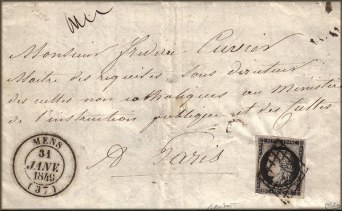 Monsieur Frédéric Cuvier
Maitre des requêtes, sous directeur
des cultes non catholiques au Ministère
de l'instruction publique et des Cultes
A Paris
MENS
31
JANV
1849
(37)